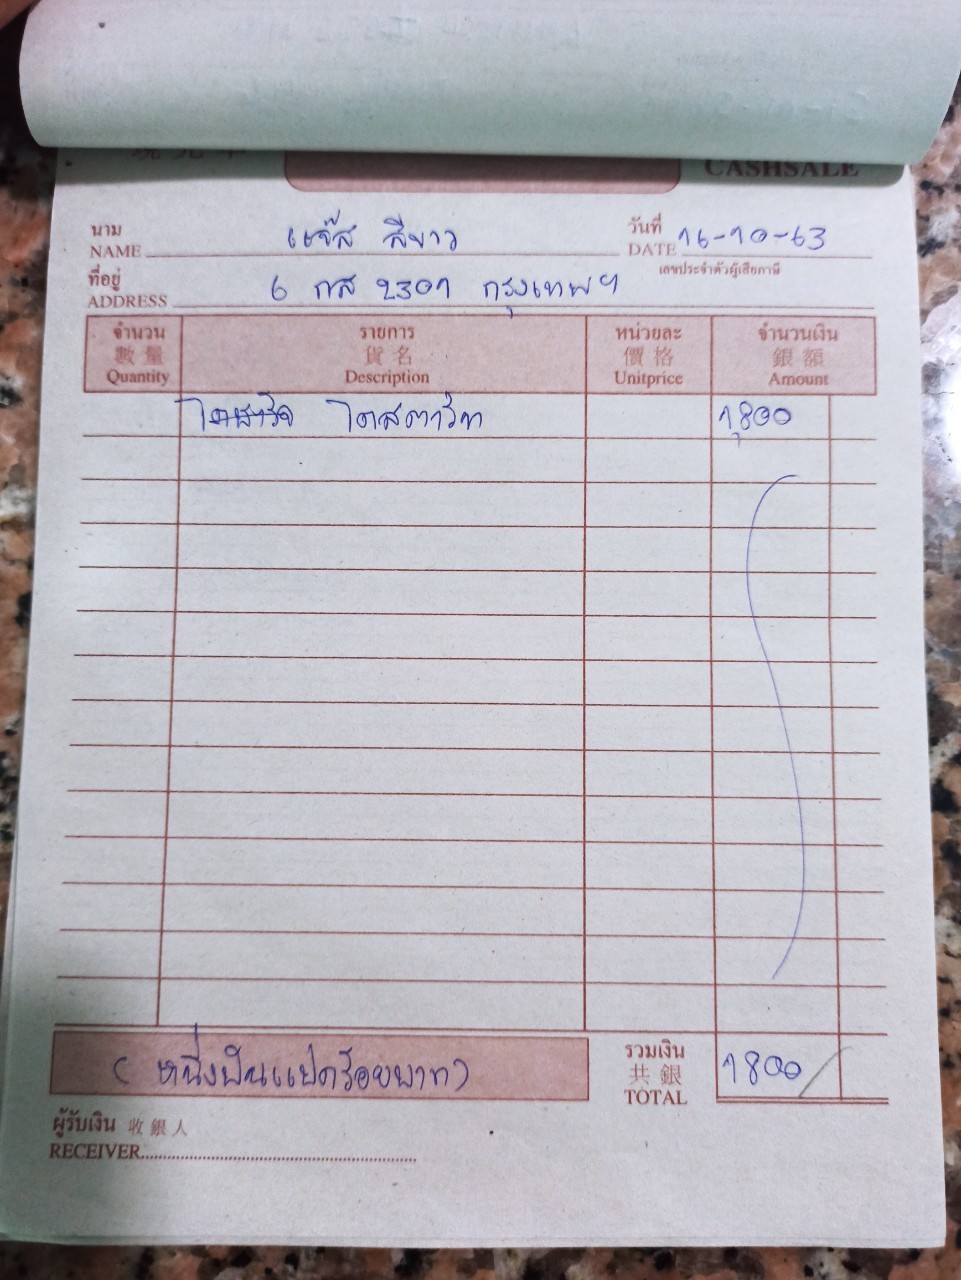 CASHSALE
นาม แจ๊ส สีขาว วันที่
NAME DATE 16-10-63
ที่อยู่ เลขประจำตัวผู้เสียภาษี
ADDRESS 6 กส 2301 กรุงเทพฯ
จำนวน รายการ หน่วยละ จำนวนเงิน
數量 貨名 價格 銀額
Quantity Description Unitprice Amount
ไดสตาร์ท 1,800
(หนึ่งพันแปดร้อยบาท) รวมเงิน
共銀 1800
TOTAL
ผู้รับเงิน 收銀人
RECEIVER